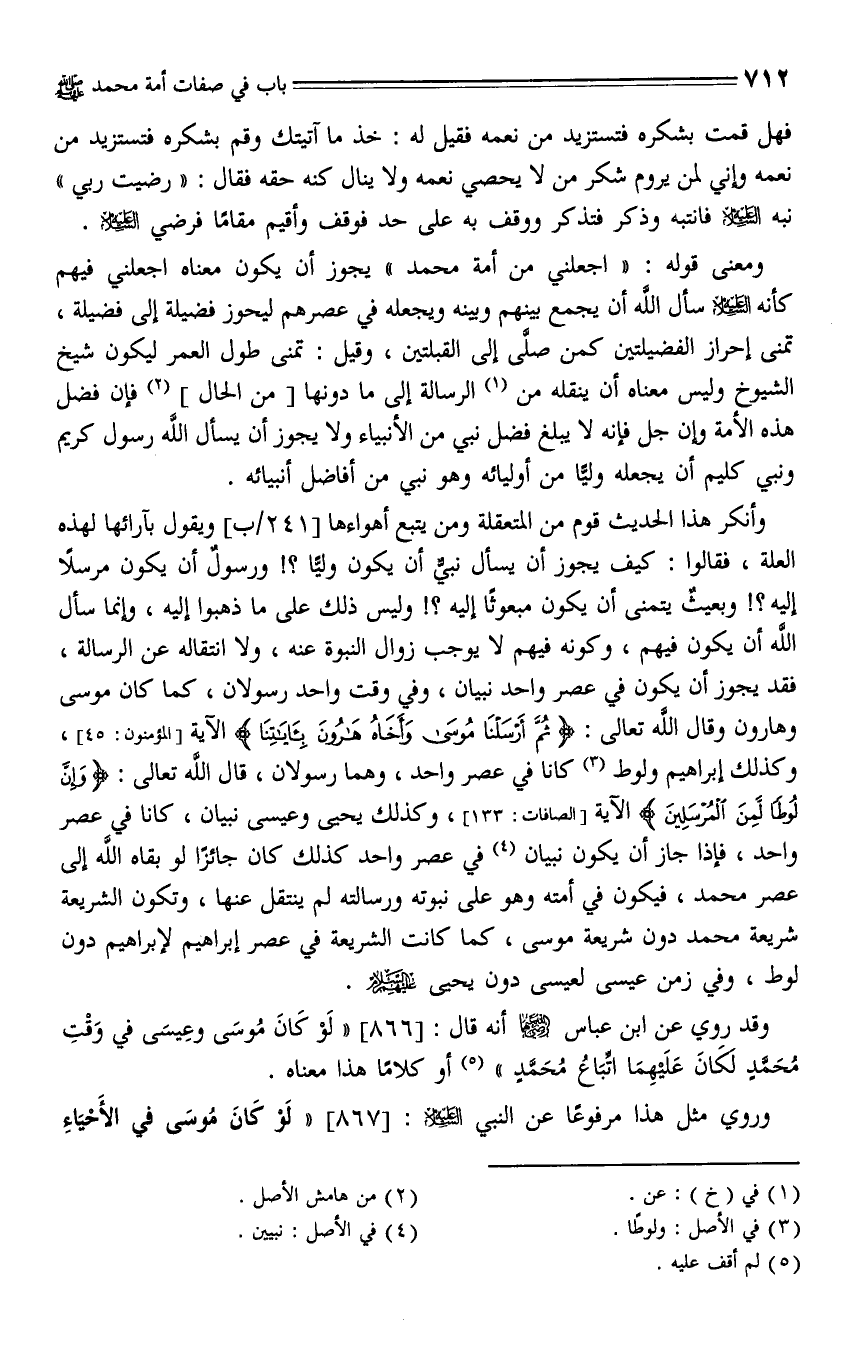 ٧١٢ باب في صفات أمة محمد ﷺ
فهل قمت بشكره فتستزيد من نعمه فقيل له : خذ ما آتيتك وقم بشكره فتستزيد من
نعمه وإني لمن يروم شكر من لا يحصي نعمه ولا ينال كنه حقه فقال : « رضيت ربي »
نبه عليه السلام فانتبه وذكر فتذكر ووقف به على حد فوقف وأقيم مقامًا فرضي عليه السلام .
ومعنى قوله : « اجعلني من أمة محمد » يجوز أن يكون معناه اجعلني فيهم
كأنه عليه السلام سأل اللَّه أن يجمع بينهم وبينه ويجعله في عصرهم ليحوز فضيلة إلى فضيلة ،
تمنى إحراز الفضيلتين كمن صلَّى إلى القبلتين ، وقيل : تمنى طول العمر ليكون شيخ
الشيوخ وليس معناه أن ينقله من (١) الرسالة إلى ما دونها [ من الحال ] (٢) فإن فضل
هذه الأمة وإن جل فإنه لا يبلغ فضل نبي من الأنبياء ولا يجوز أن يسأل اللَّه رسول كريم
ونبي كليم أن يجعله وليًّا من أوليائه وهو نبي من أفاضل أنبيائه .
وأنكر هذا الحديث قوم من المتعقلة ومن يتبع أهواءها [٢٤١/ب] ويقول بآرائها لهذه
العلة ، فقالوا : كيف يجوز أن يسأل نبيٌّ أن يكون وليًّا ؟! ورسولٌ أن يكون مرسلًا
إليه ؟! وبعيثٌ يتمنى أن يكون مبعوثًا إليه ؟! وليس ذلك على ما ذهبوا إليه ، وإنما سأل
اللَّه أن يكون فيهم ، وكونه فيهم لا يوجب زوال النبوة عنه ، ولا انتقاله عن الرسالة ،
فقد يجوز أن يكون في عصر واحد نبيان ، وفي وقت واحد رسولان ، كما كان موسى
وهارون وقال اللَّه تعالى : ﴿ ثُمَّ أَرْسَلْنَا مُوسَىٰ وَأَخَاهُ هَٰرُونَ بِـَٔايَٰتِنَا ﴾ الآية [المؤمنون: ٤٥] ،
وكذلك إبراهيم ولوط (٣) كانا في عصر واحد ، وهما رسولان ، قال اللَّه تعالى : ﴿ وَإِنَّ
لُوطًا لَّمِنَ ٱلْمُرْسَلِينَ ﴾ الآية [الصافات: ١٣٣] ، وكذلك يحيى وعيسى نبيان ، كانا في عصر
واحد ، فإذا جاز أن يكون نبيان (٤) في عصر واحد كذلك كان جائزًا لو بقاه اللَّه إلى
عصر محمد ، فيكون في أمته وهو على نبوته ورسالته لم ينتقل عنها ، وتكون الشريعة
شريعة محمد دون شريعة موسى ، كما كانت الشريعة في عصر إبراهيم لإبراهيم دون
لوط ، وفي زمن عيسى لعيسى دون يحيى عليهم السلام .
وقد روي عن ابن عباس رضي الله عنهما أنه قال : [٨٦٦] « لَوْ كَانَ مُوسَى وعِيسَى في وَقْتِ
مُحَمَّدٍ لَكَانَ عَلَيْهِمَا اتِّبَاعُ مُحَمَّدٍ » (٥) أو كلامًا هذا معناه .
وروي مثل هذا مرفوعًا عن النبي عليه السلام : [٨٦٧] « لَوْ كَانَ مُوسَى في الأَحْيَاءِ
(١) في ( خ ) : عن . (٢) من هامش الأصل .
(٣) في الأصل : ولوطًا . (٤) في الأصل : نبيين .
(٥) لم أقف عليه .